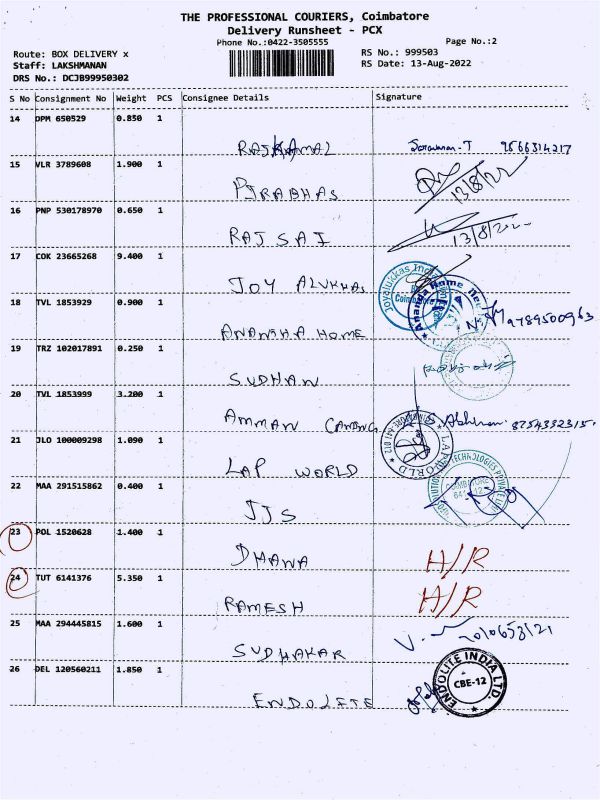 THE PROFESSIONAL COURIERS, Coimbatore
Delivery Runsheet - PCX
Phone No.:0422-3505555 Page No.:2
Route: BOX DELIVERY x RS No.: 999503
Staff: LAKSHMANAN RS Date: 13-Aug-2022
DRS No.: DCJB99950302
S No Consignment No Weight PCS Consignee Details Signature
14 DPM 650529 0.850 1
RAJKAMAL Saravanan-T 9566314217
15 VLR 3789608 1.900 1
PIRABHAS 13/8/22
16 PNP 530178970 0.650 1
RAJ SAI 13/8/22
17 COK 23665268 9.400 1
JOY ALUKHAS Joyalukkas Coimbatore
18 TVL 1853929 0.900 1
ANANSHA HOME Home 9789500963
19 TRZ 102017891 0.250 1
SUDHAN
20 TVL 1853999 3.200 1
AMMAN 8754332315
21 JLO 100009298 1.090 1
LAP WORLD LAP WORLD COIMBATORE-641 012
22 MAA 291515862 0.400 1
JJS TECHNOLOGIES PRIVATE COIMBATORE
23 POL 1520628 1.400 1
DHANA H/R
24 TUT 6141376 5.350 1
RAMESH H/R
25 MAA 294445815 1.600 1
SUDHAKAR
26 DEL 120560211 1.850 1
ENDOLETE ENDOLITE INDIA LTD. CBE-12